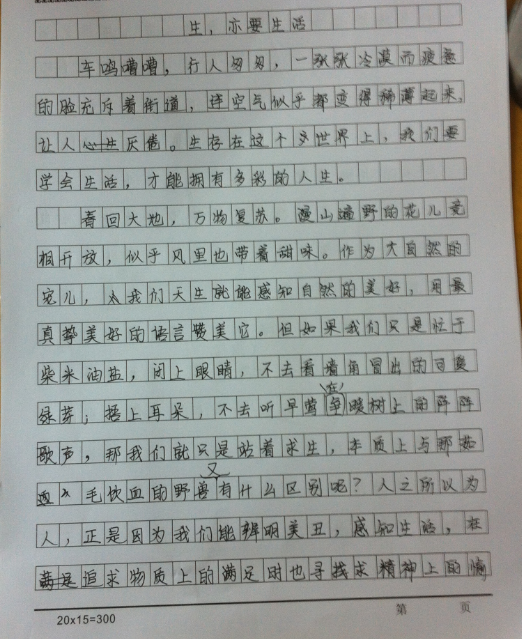 生，亦要生活
车鸣嘈嘈，行人匆匆，一张张冷漠而疲惫
的脸充斥着街道，连空气似乎都变得稀薄起来，
让人心生厌倦。生存在这个世界上，我们要
学会生活，才能拥有多彩的人生。
春回大地，万物复苏。漫山遍野的花儿竞
相开放，似乎风里也带着甜味。作为大自然的
宠儿，我们天生就能感知自然的美好，用最
真挚美好的语言赞美它。但如果我们只是忙于
柴米油盐，闭上眼睛，不去看墙角冒出的可爱
绿芽；捂上耳朵，不去听早莺在争暖树上的阵阵
歌声，那我们就只是站着求生，本质上与那茹
毛饮血的野兽又有什么区别呢？人之所以为
人，正是因为我们能辨明美丑，感知生活，在
追求物质上的满足时也寻找求精神上的愉
20×15=300
第 页